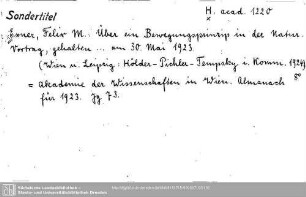 Sondertitel
H. acad. 1220
Exner, Felix M.: Über ein Bewegungsprinzip in der Natur.
Vortrag, gehalten ... am 30. Mai 1923.
(Wien u. Leipzig: Hölder-Pichler-Tempsky i. Komm. 1924)
8°
= Akademie der Wissenschaften in Wien. Almanach
für 1923. Jg 73.